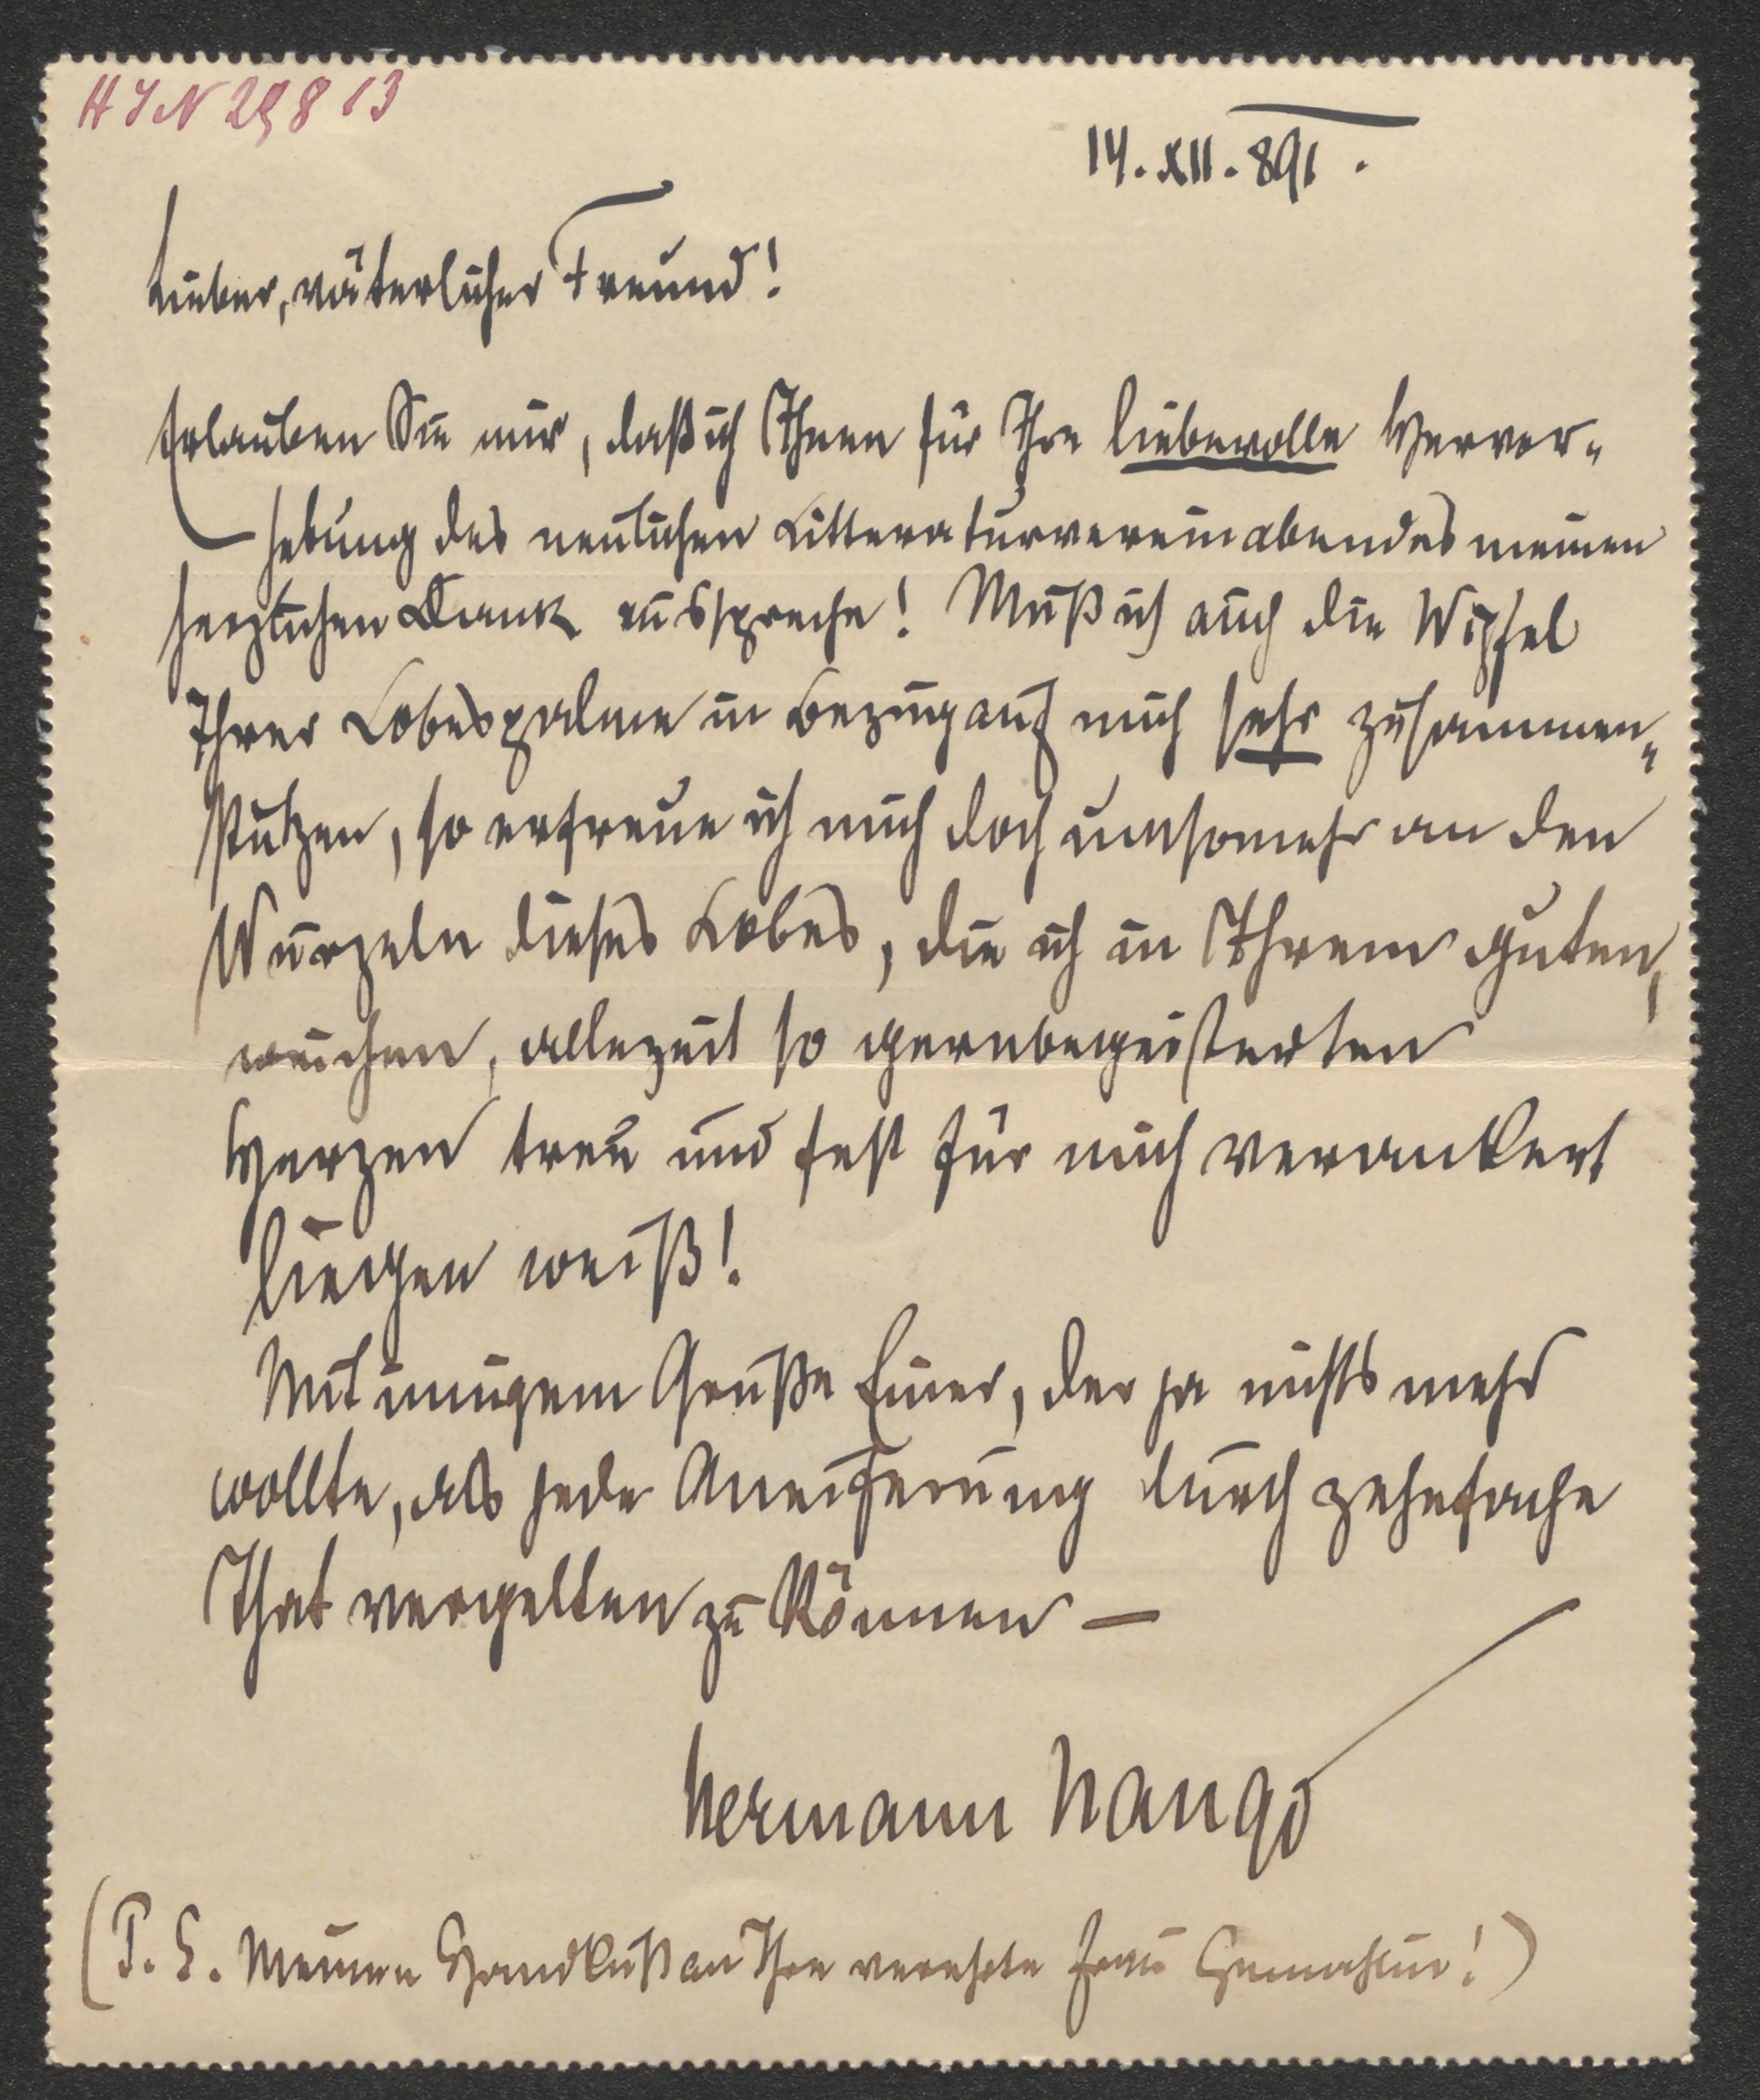 HIN 29813
14. XII. 891.
Lieber, väterlicher Freund!
Erlauben Sie mir, daß ich Ihnen für Ihre liebevolle Hervor-
hebung des neulichen Litteraturvereinabendes meinen
herzlichen Dank ausspreche! Muß ich auch die Wipfel
Ihrer Lobespalme in Bezug auf mich sehr zusammen-
stutzen, so erfreue ich mich doch umsomehr an den
Wurzeln dieses Lobes, die ich in Ihrem guten,
weichen, allezeit so gernbegeisterten
Herzen treu und fest für mich verankert
liegen weiß!
Mit innigem Gruße Einer, der ja nichts mehr
wollte, als jede Aneiferung durch zehnfache
That vergelten zu können —
Hermann Hango
(P. S. Meinen Handkuß an Ihre verehrte Frau Gemahlin!)